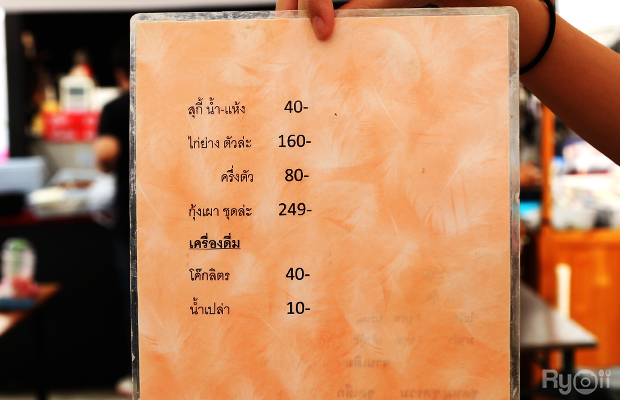 สุกี้ น้ำ-แห้ง 40-
ไก่ย่าง ตัวล่ะ 160-
ครึ่งตัว 80-
กุ้งเผา ชุดล่ะ 249-
เครื่องดื่ม
โค๊กลิตร 40-
น้ำเปล่า 10-
Ryoii